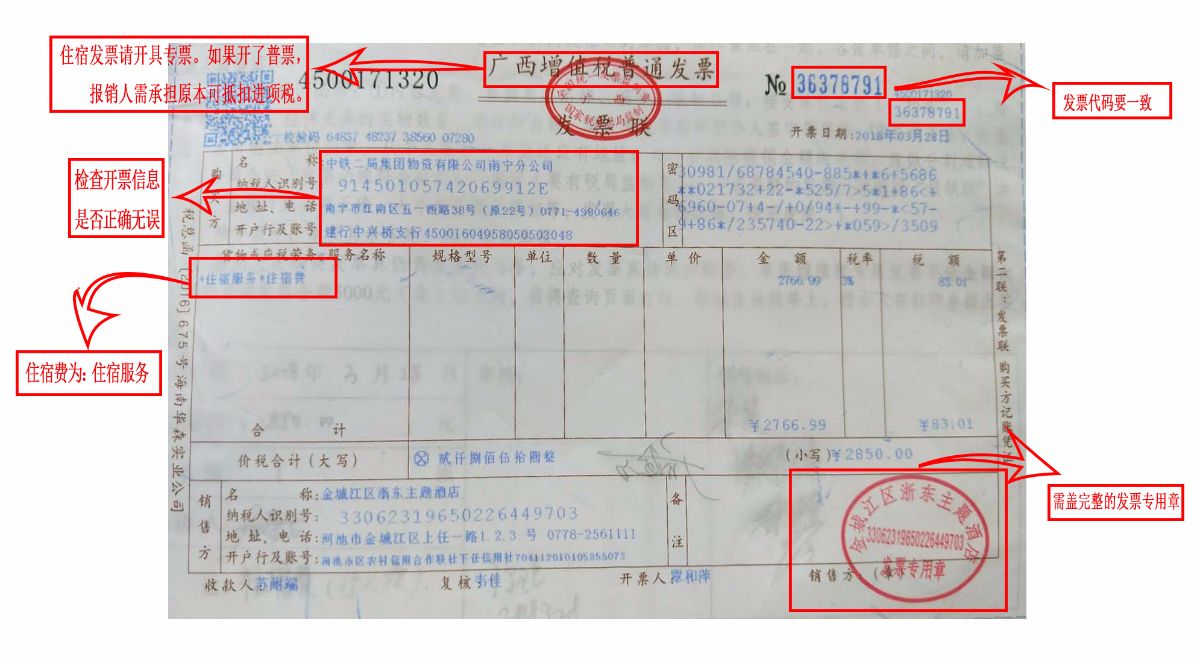 住宿发票请开具专票。如果开了普票，
报销人需承担原本可抵扣进项税。
4500171320
广西增值税普通发票
发票联
№ 36378791
4500171320
36378791
发票代码要一致
校验码 64837 48237 38560 07280
开票日期:2018年03月28日
检查开票信息
是否正确无误
购买方
名称:中铁二局集团物资有限公司南宁分公司
纳税人识别号:91450105742069912E
地址、电话:南宁市江南区五一西路38号（原22号）0771-4980646
开户行及账号:建行中兴桥支行45001604958050503048
密码区
30981/68784540-885*+*6+5686
**021732+22-*525/7>5*1+86<+
6960-07+4-/+0/94+-+99-*<57-
9+86*/235740-22>+*059>/3509
货物或应税劳务、服务名称 规格型号 单位 数量 单价 金额 税率 税额
*住宿服务*住宿费 2766.99 3% 83.01
住宿费为: 住宿服务
合计 ¥2766.99 ¥83.01
价税合计(大写) ⊗ 贰仟捌佰伍拾圆整 (小写)¥2850.00
需盖完整的发票专用章
销售方
名称:金城江区浙东主题酒店
纳税人识别号:330623196502264497​03
地址、电话:河池市金城江区上任一路1.2.3.号 0778-2561111
开户行及账号:河池市区农村信用合作联社下任信用社704112010105855073
备注
金城江区浙东主题酒店
33062319650226449703
发票专用章
收款人 复核:韦佳 开票人 销售方:(章)
税总函[2016]675号海南华森实业公司
第二联:发票联 购买方记账凭证